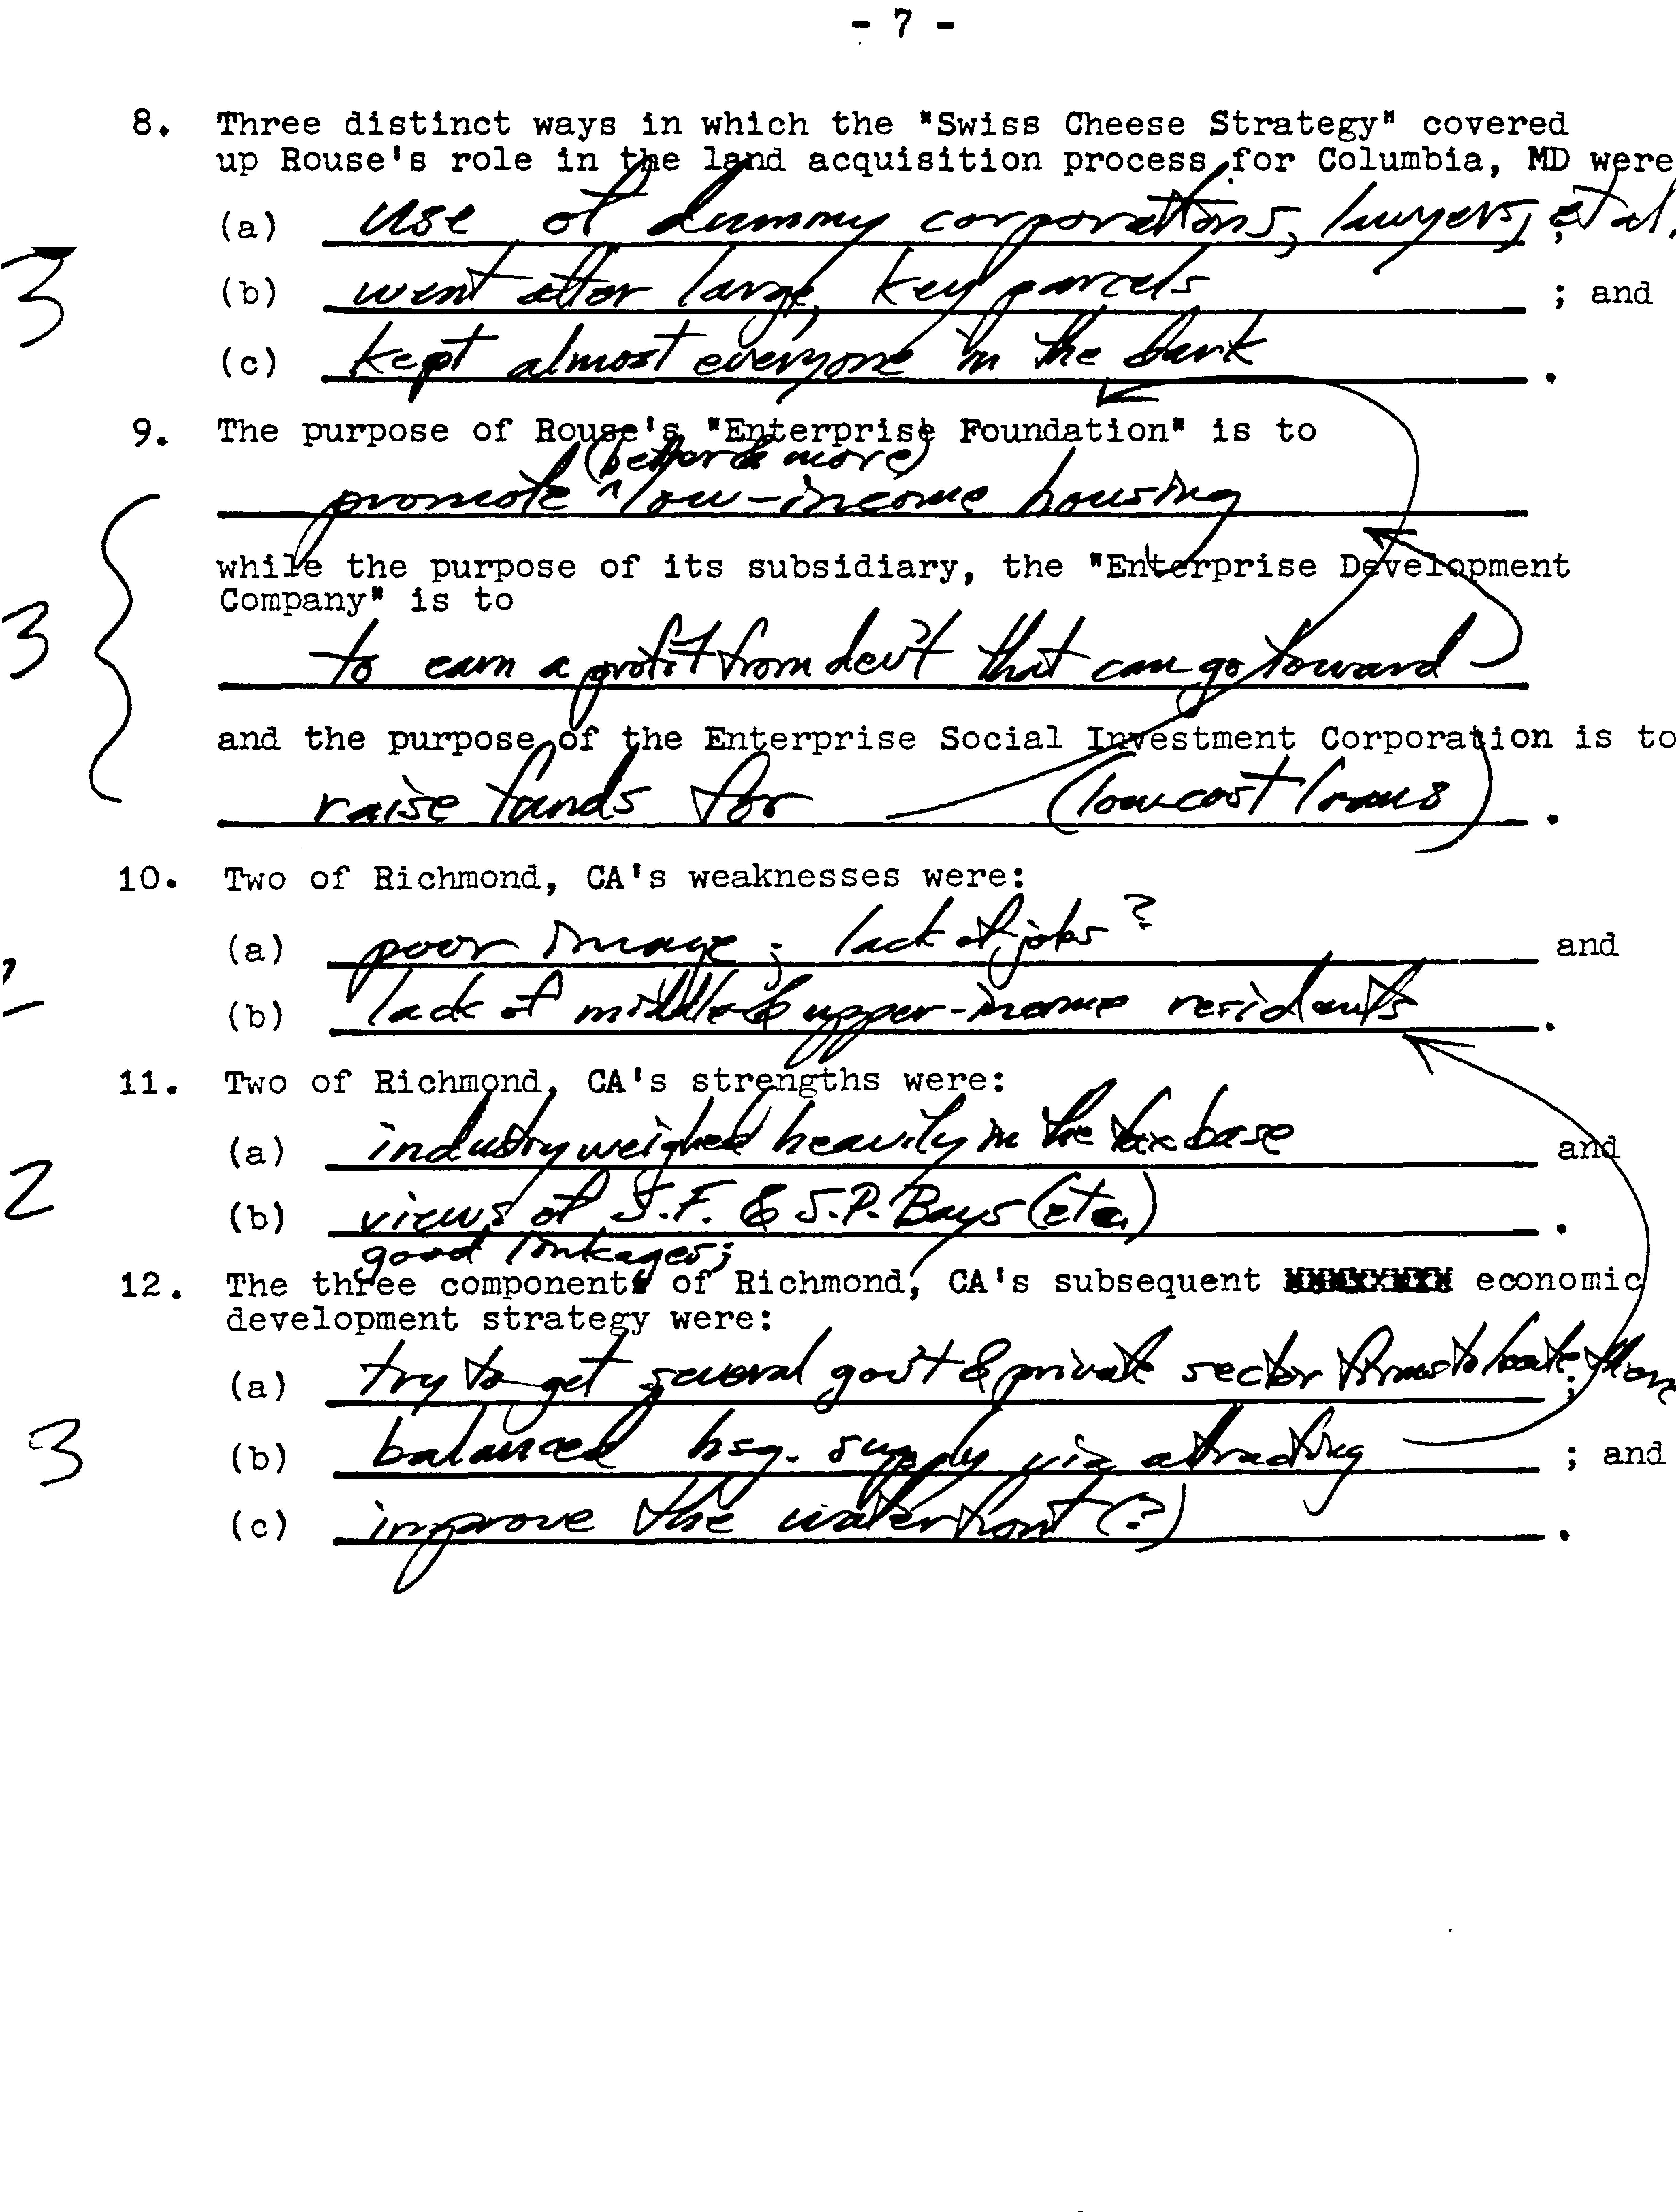 - 7 -
8. Three distinct ways in which the "Swiss Cheese Strategy" covered
up Rouse's role in the land acquisition process for Columbia, MD were
(a) use of dummy corporations, lawyers, et al. ;
3
(b) went after large, key parcels ; and
(c) kept almost everyone in the dark .
9. The purpose of Rouse's "Enterprise Foundation" is to
(better & more)
promote ^ low-income housing
while the purpose of its subsidiary, the "Enterprise Development
Company" is to
3
to earn a profit from dev't that can go toward
and the purpose of the Enterprise Social Investment Corporation is to
raise funds for (low cost loans) .
10. Two of Richmond, CA's weaknesses were:
(a) poor image ; lack of jobs ? and
2
(b) lack of middle- & upper-income residents .
11. Two of Richmond, CA's strengths were:
(a) industry weighed heavily in the tax base and
2
(b) views of S.F. & S.P. Bays (etc.) .
good linkages;
12. The three components of Richmond, CA's subsequent economic
development strategy were:
(a) try to get several gov't & private sector firms to locate there ;
3
(b) balanced hsg. supply via attracting ; and
(c) improve the waterfront (?) .